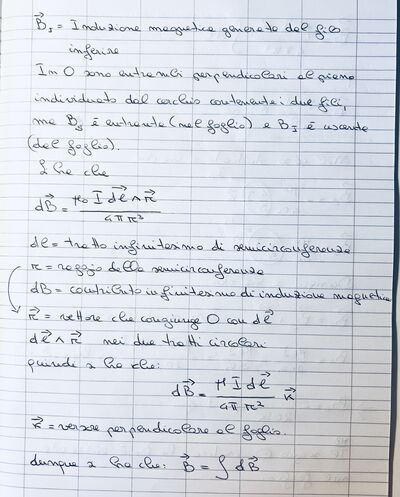 B⃗_I = Induzione magnetica generata dal filo
inferire
In O sono entrambi perpendicolari al piano
individuato dal cerchio contenente i due fili,
ma B_S è entrante (nel foglio) e B_I è uscente
(dal foglio).
Si ha che
dB⃗ = μ₀ I dl⃗ ∧ r⃗ / 4π r²
dl = tratto infinitesimo di semicirconferenza
r = raggio della semicirconferenza
dB = contributo infinitesimo di induzione magnetica
r⃗ = vettore che congiunge O con dl⃗
dl⃗ ∧ r⃗ nei due tratti circolari
quindi si ha che:
dB⃗ = μ I dl⃗ / 4π r² k⃗
k⃗ = versore perpendicolare al foglio.
dunque si ha che: B⃗ = ∫ dB⃗